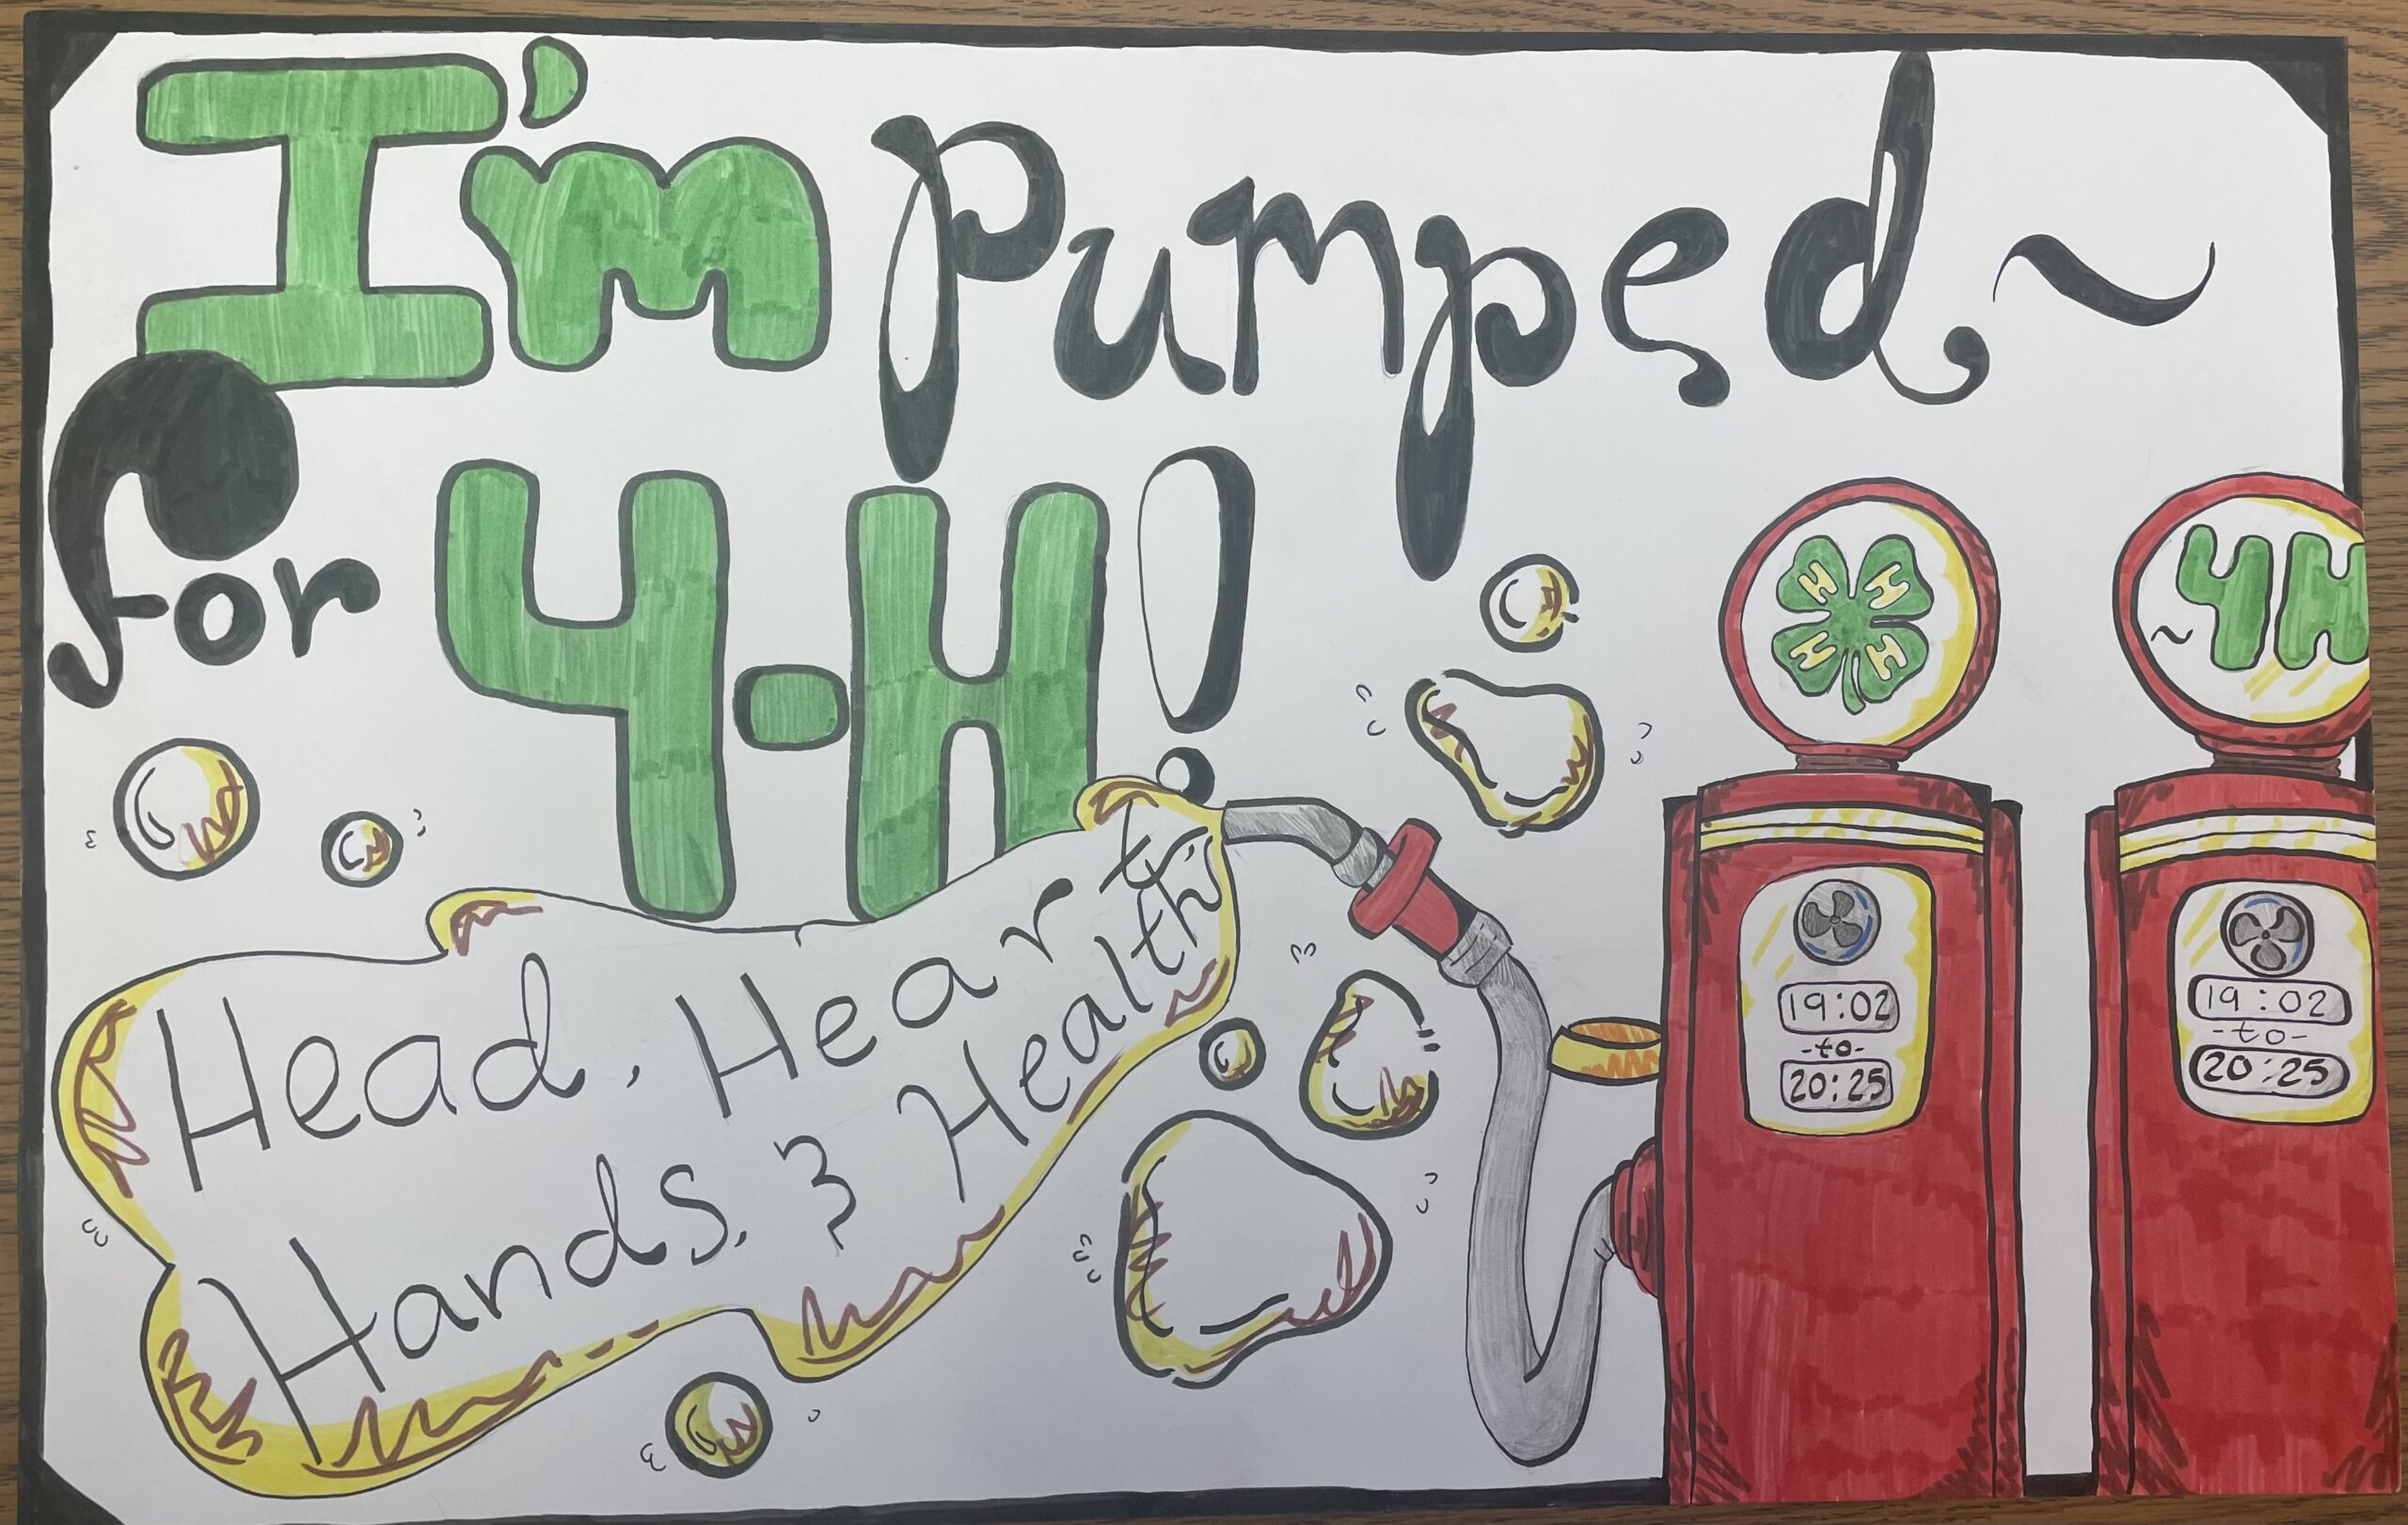 I'm Pumped~
for 4-H!
H H
H H
~4H
Head, Heart,
Hands, & Health
19:02
-to-
20:25
19:02
-to-
20:25